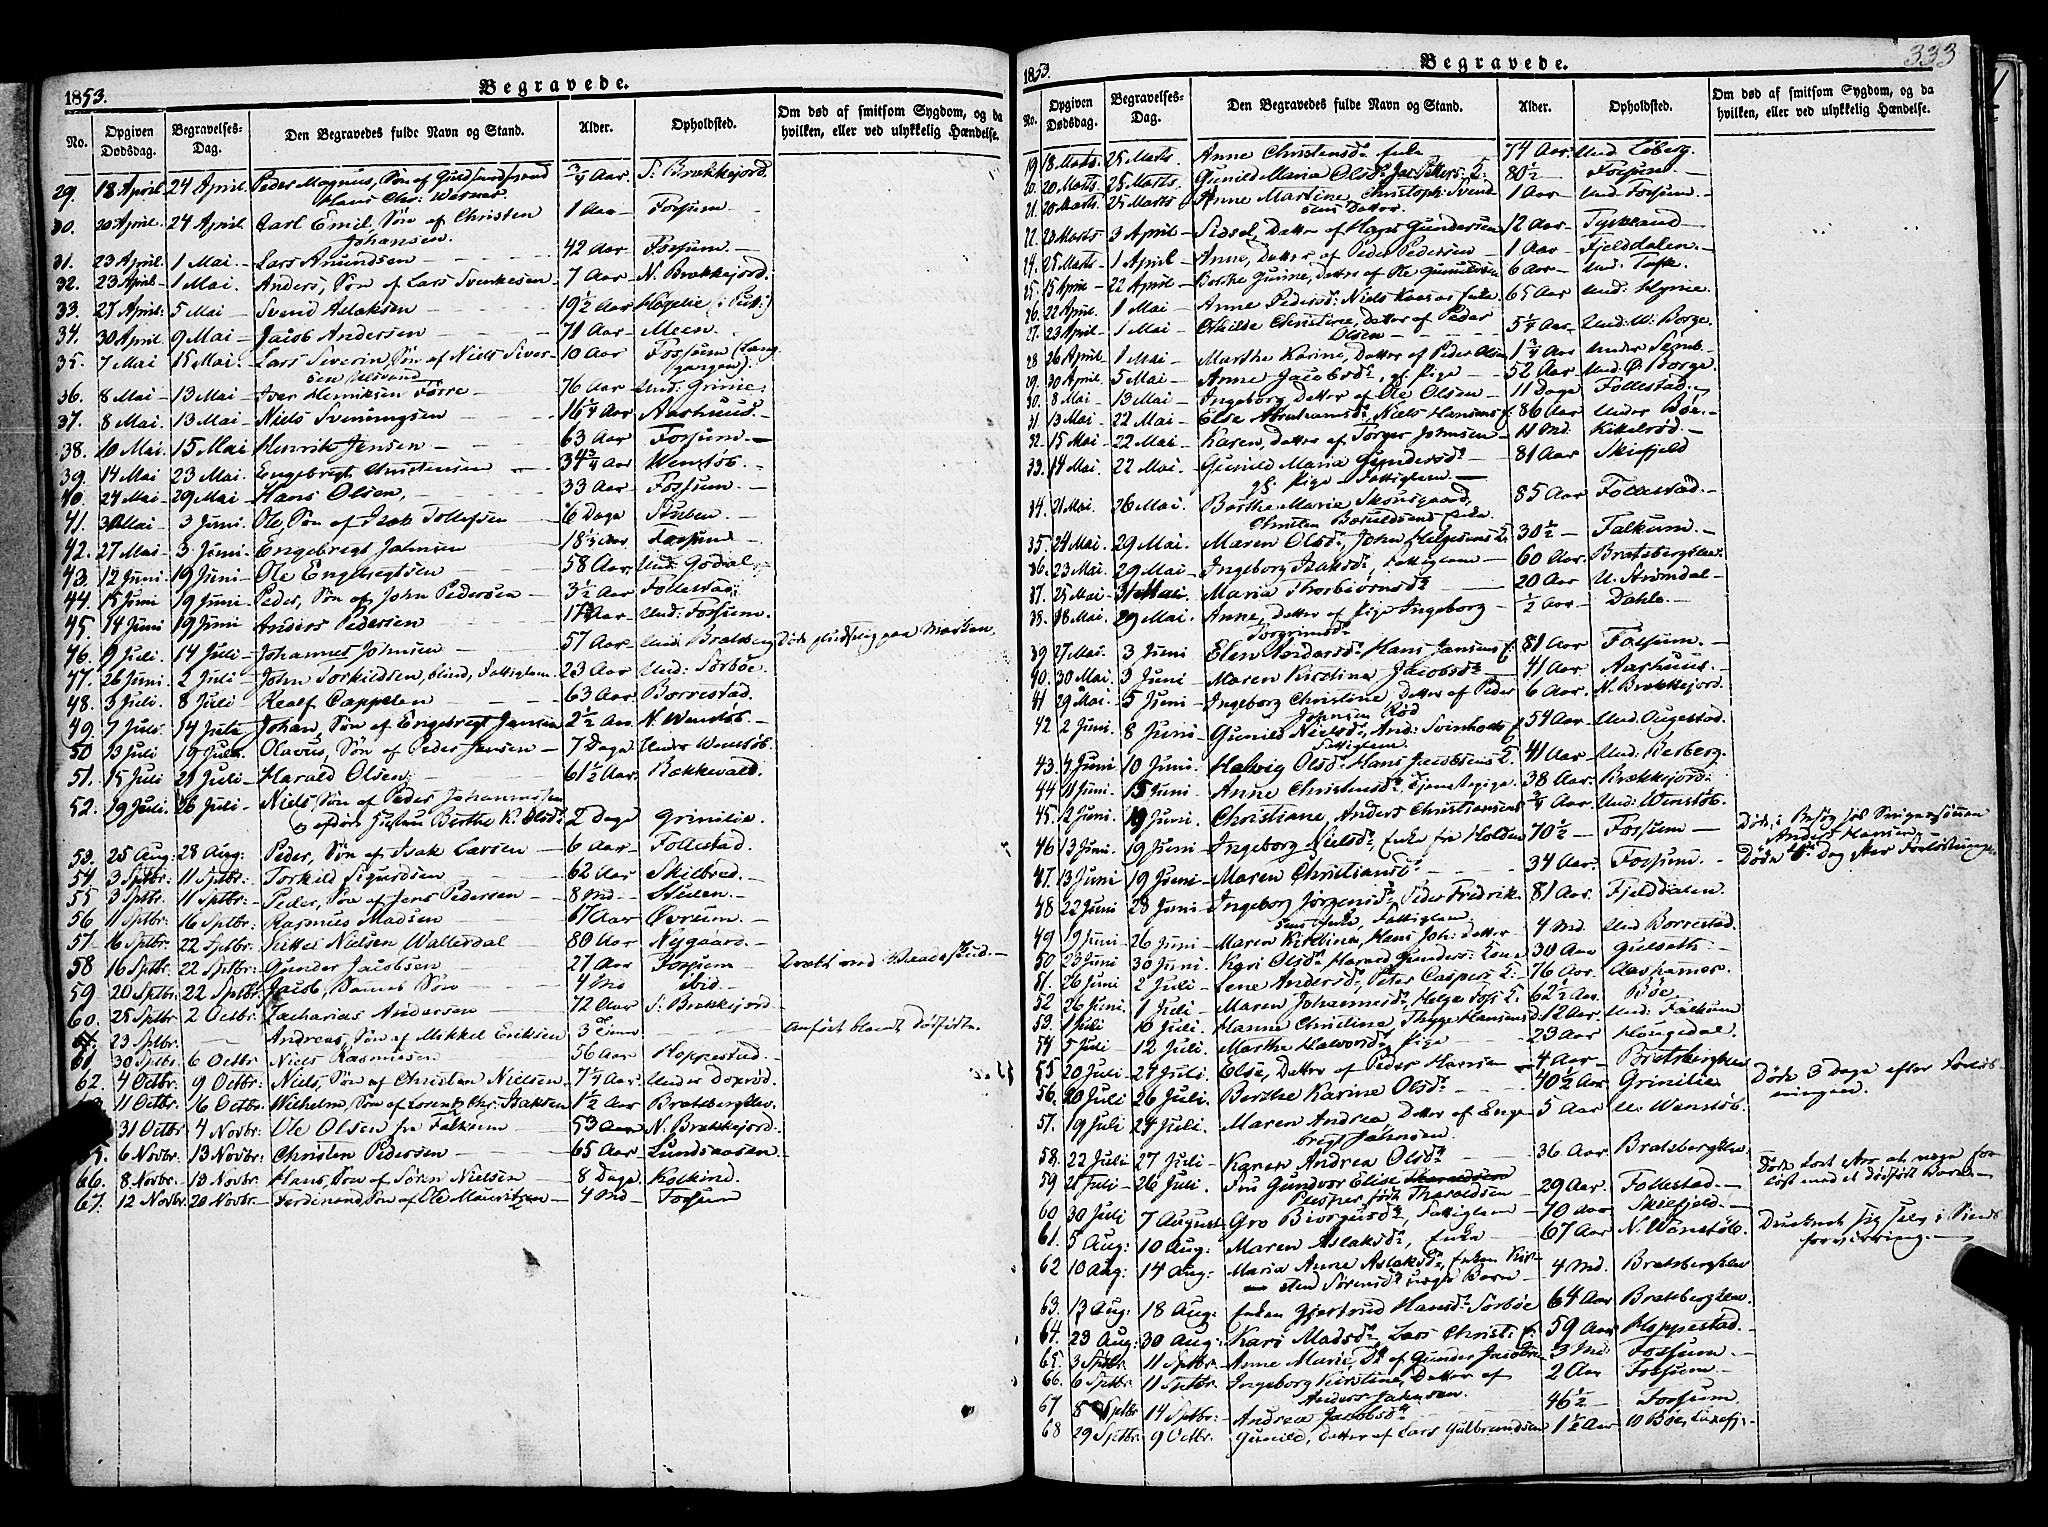 1853.
Begravede.
No.
Opgiven Dødsdag.
Begravelses-Dag.
Den Begravedes fulde Navn og Stand.
Alder.
Opholdsted.
Om død af smitsom Sygdom, og da hvilken, eller ved ulykkelig Hændelse.
29. 18 April 24 April Peder Magnus, Søn af
Hans Chr: Werner. 3/4 Aar S: Brækkejord.
30. 20 April. 24 April. Carl Emil, Søn af Christen
Johansen. 1 Aar Fossum.
31. 23 April. 1 Mai Lars Amundsen 42 Aar Fossum.
32. 23 April 1 Mai. Anders, Søn af Lars Svenkesen 7 Aar N. Brækkejord.
33. 27 April: 5 Mai Svend Aslaksen 19 1/2 Aar
34. 30 April 9 Mai Jacob Andersen 71 Aar Meen.
35. 7 Mai 15 Mai. Lars Severin, Søn af Niels Siver-
sen 10 Aar Fossum (Lang
gangen).
36. 8 Mai 13 Mai Iver Henriksen 76 Aar Und: Grinie.
37. 8 Mai. 13 Mai Niels Svenningsen 16 1/4 Aar Aarhuus.
38. 10 Mai. 15 Mai Henrik Jensen 63 Aar Fossum.
39. 14 Mai 23 Mai. Engebregt Christensen 34 3/4 Aar Wenstøb.
40. 24 Mai 29 Mai Hans Olsen, 33 Aar Fossum.
41. 30 Mai 3 Juni. Ole, Søn af Isak Tollefsen 6 Dage Stuben.
42. 27 Mai 3 Juni Engebregt Johnsen 18 1/2 Aar Fossum
43. 12 Juni 19 Juni Ole Engebregtsen 58 Aar Und: Godal
44. 15 Juni 19 Juni Peder, Søn af John Pedersen 3 1/2 Aar Follestad
45. 14 Juni 19 Juni Anders Pedersen Aar Und: Fossum.
46. 9 Juli. 14 Juli Johannes Johnsen 57 Aar Und Bratsberg Døde pludselig paa Marken.
47. 26 Juni. 2 Juli John Torkildsen, blind, Fattiglem 23 Aar Und: Sorbøe.
48. 3 Juli. 8 Juli Realf Cappelen 63 Aar Borrestad.
49. 7 Juli 14 Juli Johan, Søn af Engebregt Jansen 2 1/2 Aar N. Wenstøb.
50 13 Juli 19 Juli. Olavus, Søn af Peder Jansen 7 Dage Under Wenstøb.
51. 15 Juli 21 Juli Harald Olsen 61 1/2 Aar. Bækkevold.
52. 19 Juli. 26 Juli Niels Søn af Peder Johannessen
Hustru Berthe K. Olsd 2 Dage Grinilia.
53. 25 Aug: 28 Aug: Peder, Søn af Isak Larsen 6 Aar Follestad.
54 3 Sptbr: 11 Sptbr: Torkild Sigurdsen 62 Aar Skilbred.
55 3 Sptbr: 11 Sptbr: Peder, Søn af Jens Pedersen 8 Md Stulen.
56 11 Sptbr: 16 Sptbr: Rasmus Madsen 67 Aar Øvrum.
57 16 Sptbr: 22 Sptbr: Kittel Nielsen Wallerdal 80 Aar Nygaard.
58 16 Sptbr: 22 Sptbr: Gunder Jacobsen 27 Aar Fossum Dræbt ved Vaadeskud.
59 20 Sptbr: 22 Sptbr: Jacob, Sammes Søn 4 Md ibid.
60. 25 Sptbr 2 Octbr: Zacharias Andersen 72 Aar S: Brækkejord
23 Sptbr. Andreas, Søn af Mikkel Eriksen 3 Timer anført blandt Dødfødte.
61 30 Sptbr: 6 Octbr Niels Rasmusen 56 Aar Hoppestad.
62. 4 Octbr: 9 Octbr: Niels, Søn af Christen Nielsen 7 1/4 Aar: Under Doxrød.
11 Octbr: 16 Octbr: Wilhelm, Søn af Lorentz Chr: Isaksen 1 1/2 Aar Bratsbergklev.
31 Octbr: 4 Novbr: Ole Olsen fra Falkum 53 Aar N. Brækkejord.
6 Novbr: 13 Novbr: Christen Pedersen 65 Aar Lundsaasen
66 8 Novbr: 13 Novbr: Hans, Søn af Søren Nielsen 8 Dage Kolkind.
67. 12 Novbr: 20 Novbr: Ferdinand, Søn af Ole Mauritzen 4 Md Fossum
1853.
Begravede.
333
No.
Opgiven Dødsdag.
Begravelses-Dag.
Den Begravedes fulde Navn og Stand.
Alder.
Opholdsted.
Om død af smitsom Sygdom, og da hvilken, eller ved ulykkelig Hændelse.
19 18 Marts 25 Marts. Anne Christensd. Enke 74 Aar Und. Loberg.
20. 20 Marts 25 Marts. Gunild Maria Olsd. 80 1/2 Fossum
21. 20 Marts 25 Marts Anne Martine, Christoph: Svend
sens Datter. 1 Aar Und: Fossum.
22. 28 Marts 3 April Sidsel, Datter af Hans Gundersen 12 Aar Tyskland
24. 25 Marts 1 April Anne, Datter af Peder Pedersen 1 Aar Fjelddalen.
25. 15 April 22 April Berthe Gurine, Datter af Ole 6 Aar Und: Tufte.
26. 22 April. 1 Mai Anne Pedersd. Niels Enke 65 Aar Und:
27. 23 April 1 Mai Christine, Datter af Peder
Olsen 5 1/4 Aar Und: W: Borge.
28 26 April 1 Mai Marthe Karine, Datter af Peder Olsen 1 3/4 Aar Under Semb
29. 30 April. 5 Mai Anne Jacobsd. gl Pige 52 Aar Und: Ø. Borge.
30. 8 Mai 13 Mai Ingeborg Datter af Ole Olsen 11 Dage Follestad.
31 13 Mai 22 Mai Else Abrahamsd. Niels Hansens E. 86 Aar Under Bøe.
32. 15 Mai 22 Mai Karen, Datter af Torger Johnsen 11 Md. Kikelrød.
33. 14 Mai 22 Mai. Gunild Maria Gundersd.
gl. Pige Fattiglem 81 Aar Skifjeld
34. 21 Mai. 26 Mai. Berthe Marie Skousgaard,
Christen Enke 85 Aar Follestad.
35. 24 Mai. 29 Mai. Maren Olsd. John Helgesens K. 30 1/2 Falkum.
36. 23 Mai. 29 Mai Ingeborg Isaksd. Fattiglem 60 Aar. Bratsbergklev.
37. 25 Mai 31 Mai. Maria Thorbiørnsd. 20 Aar U. Strømdal
38. 18 Mai. 29 Mai. Anne, Datter af Pige Ingeborg
Torgrimsd. 1/2 Aar Dahle.
39 27 Mai. 3 Juni Elen Hans Jansens E. 81 Aar Fossum.
40 30 Mai 3 Juni Maren Kirstina Jacobsd. 41 Aar Aarhuus.
41 29 Mai 5 Juni Ingeborg Christine, Datter af Peder
Johnsen Rød 6 Aar N. Brækkejord.
42 2 Juni. 8 Juni Gunild Nielsd. And: Svenholt E.
Fattiglem. 54 Aar Und Augestad.
43. 4 Juni 10 Juni. Helvig Olsd. Hans Jacobsens E. 41 Aar Und: Borberg.
44 11 Juni. 15 Juni Anne Christensd. Tjenestepige 38 Aar. Brækkejord.
45. 12 Juni. 19 Juni. Christiane, Anders Christiansens 3/4 Aar. Und: Wenstøb.
46 13 Juni. 19 Juni Ingeborg Nielsd. Enke fra Holden 70 1/2 Fossum Døde i Besøg hos Svigersønnen
Anders Hansen
47. 13 Juni 19 Juni Maren Christiansd. 34 Aar. Fossum. Døde Dag efter Forløsningen.
48 22 Juni 28 Juni Ingeborg Jørgensd. Peder Fredrik-
sens Enke, Fattiglem 81 Aar. Fjelddalen.
49 19 Juni 26 Juni Maren Kirstine, Hans Joh: Datter 4 Md Und Borrestad.
50 23 Juni 30 Juni Kari Olsd. Harald Gunders: Kone 30 Aar Gulseth.
51. 26 Juni 2 Juli Lene Andersd. Peter Caspers: E. 76 Aar. Aashamer.
52 26 Juni. 1 Juli Maren Johannesd. Helge E. 62 1/2 Aar. Bøe.
53. 1 Juli 6 Juli. Hanne Christine, Thyge Hansens d: 12 Aar Und: Falkum
54 5 Juli 12 Juli. Marthe Halvorsd. Pige 23 Aar Haugedal.
55 20 Juli 24 Juli. Else, Datter af Peder Hansen 4 Aar Bratsbergklev
56. 20 Juli 26 Juli. Berthe Karine Olsd. 40 1/2 Aar Grinilie Døde 3 Dage efter Forløs-
ningen.
57. 19 Juli 24 Juli. Maren Andrea Datter af Enge-
bregt Johnsen. 5 Aar U. Wenstøb.
58. 22 Juli 27 Juli Karen Andrea Olsd. 36 Aar Bratsbergklev
59 21 Juli 26 Juli. Fru Gundvor Elise
Plesner født Tharaldsen 29 Aar. Follestad. Døde kort efter at være for-
løst med et dødfødt Barn
60 30 Juli 7 August Gro Biørgusd., Fattiglem 70 Aar Skiefjeld.
61. 5 Aug: 10 Aug: Maren Aslaksd., Enke 67 Aar N. Wenstøb. Druknet sig selv i Sinds-
forvirring.
62 10 Aug: 14 Aug: Maria Anne Aslaksd., Enken Kir-
stens Sørensd. uægte Barn 4 Md. Bratsbergklev
63. 13 Aug: 18 Aug: Enken Gjertrud Hansd. Sorbøe 64 Aar Bratsbergklev.
64. 23 Aug: 30 Aug: Kari Madsd. Lars Christ: E. 59 Aar Hoppestad.
65. 3 Sptbr 11 Sptbr. Anne Marie, D. af Gunder Jacobsen 3 Md. Fossum
66. 6 Sptbr. 11 Sptbr. Ingeborg Kirstine, Datter af
Anders Johnsen. 2 Aar Fossum
67 8 Sptbr 14 Sptbr: Andrea Jacobsd. 46 1/2 Fossum
68 29 Sptbr. 9 Octbr. Gunild, Datter af Lars Gulbrandsen 1 1/2 Aar